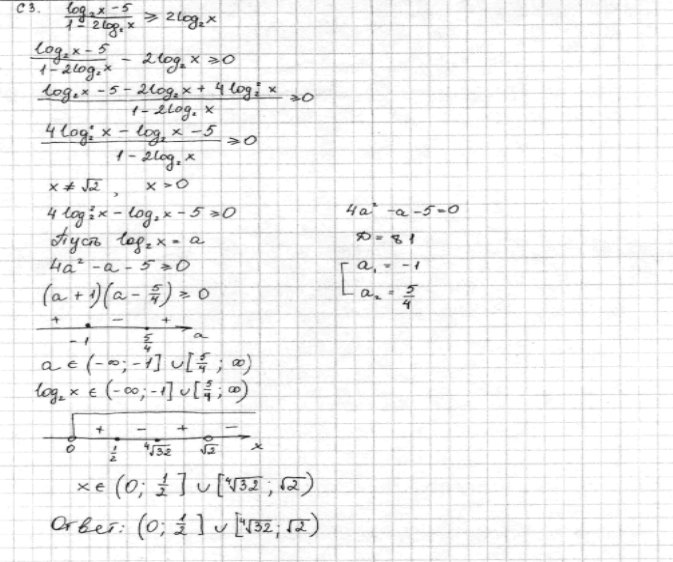 С3. (log₂x - 5)/(1 - 2log₂x) ≥ 2log₂x
(log₂x - 5)/(1 - 2log₂x) - 2log₂x ≥ 0
(log₂x - 5 - 2log₂x + 4log₂²x)/(1 - 2log₂x) ≥ 0
(4log₂²x - log₂x - 5)/(1 - 2log₂x) ≥ 0
x ≠ √2, x > 0
4log₂²x - log₂x - 5 ≥ 0
Пусть log₂x = a
4a² - a - 5 ≥ 0
(a + 1)(a - 5/4) ≥ 0
+ - +
-1 5/4 a
a ∈ (-∞; -1] ∪ [5/4; ∞)
log₂x ∈ (-∞; -1] ∪ [5/4; ∞)
+ - + -
0 1/2 ⁴√32 √2 x
x ∈ (0; 1/2] ∪ [⁴√32; √2)
Ответ: (0; 1/2] ∪ [⁴√32; √2)
4a² - a - 5 = 0
D = 81
a₁ = -1
a₂ = 5/4